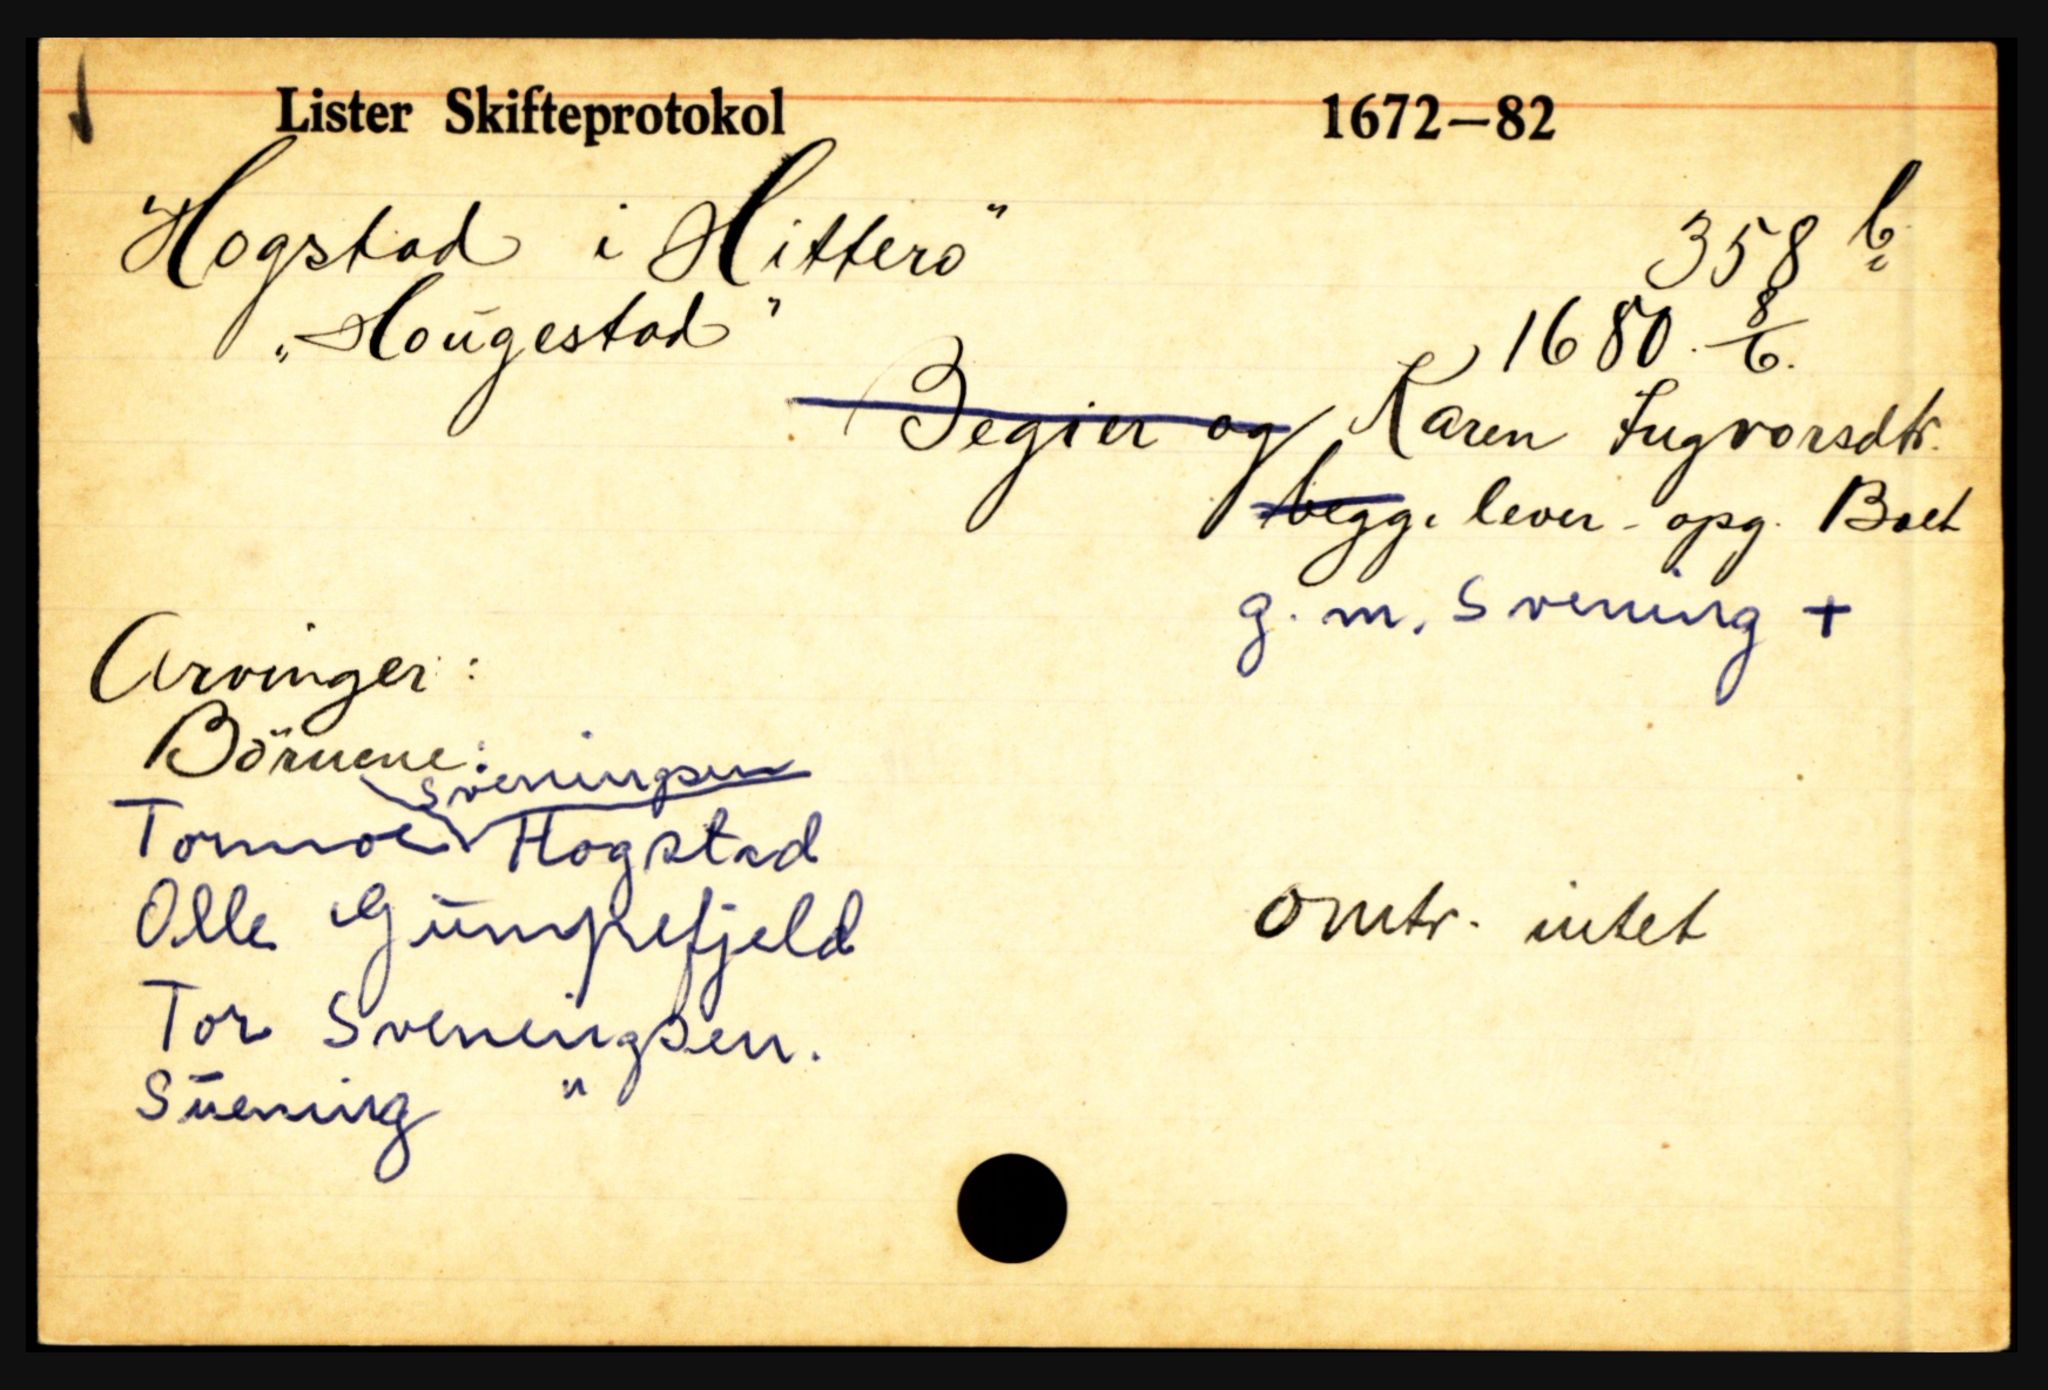 Lister Skifteprotokol 1672—82
Hogstad i Hitterö 358 b.
„Hougestad" 1680. 8/6.
Begier og Karen Ingvorsdtr.
begge lever - opg. Boet
g. m. Svening +
Arvinger:
Börnene:
Sveningsen
Tormoe Hogstad
Olle Gümpefjeld omtr. intet
Tor Sveningsen.
Süening "